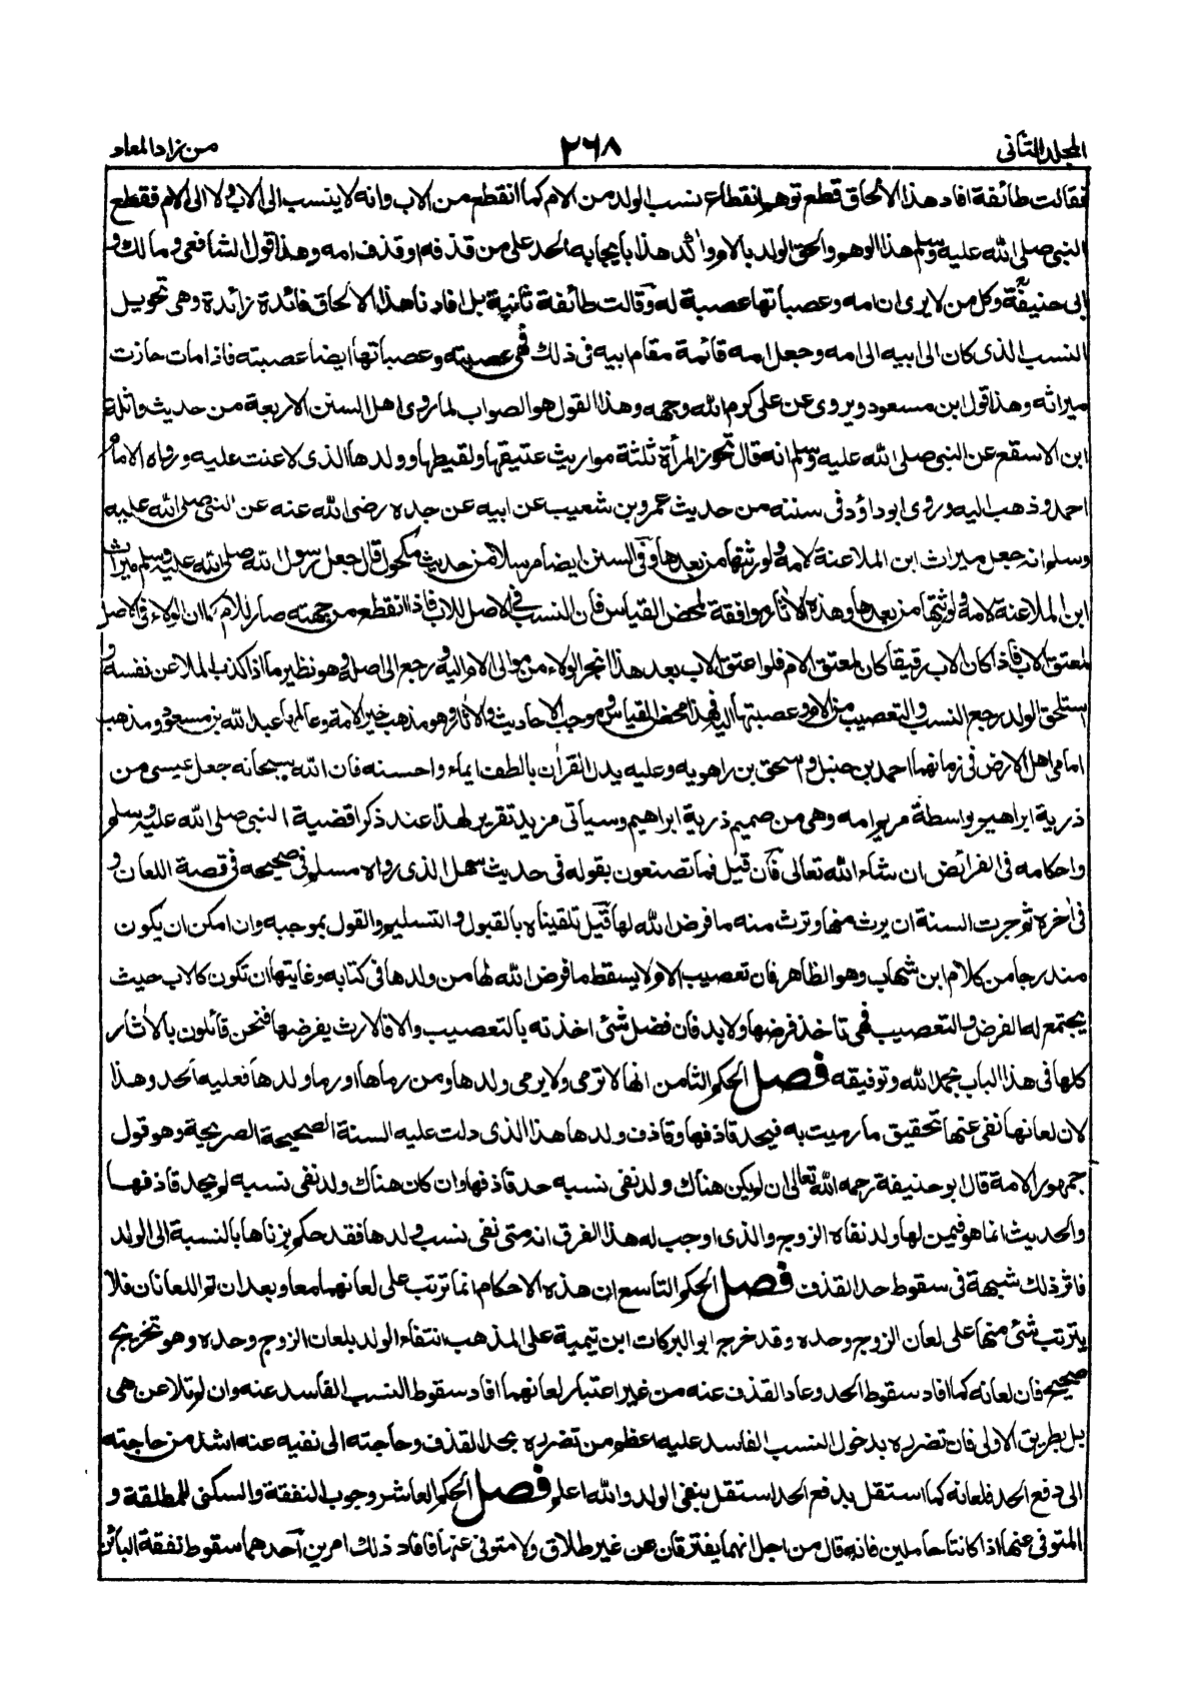 المجلد الثانى
٢٦٨
من زاد المعاد
فقالت طائفة افاد هذا الالحاق قطع توهم انقطاع نسب الولد من الام كما انقطع من الاب وانه لا ينسب الى الاب ولا الى الام فقطع
النبى صلى الله عليه وسلم هذا الوهم والحق الولد بالام واكد هذا بايجابه الحد على من قذفه او قذف امه وهذا قول الشافعى ومالك و
ابى حنيفة وكل من لا يرى ان امه وعصباتها عصبة له وقالت طائفة ثانية بل افادنا هذا الالحاق فائدة زائدة وهى تحويل
النسب الذى كان الى ابيه الى امه وجعل امه قائمة مقام ابيه فى ذلك فهى عصبته وعصباتها ايضا عصبته فاذا مات حازت
ميراثه وهذا قول ابن مسعود ويروى عن على كرم الله وجهه وهذا القول هو الصواب لما روى اهل السنن الاربعة من حديث واثلة
ابن الاسقع عن النبى صلى الله عليه وسلم انه قال تحوز المرأة ثلثة مواريث عتيقها ولقيطها وولدها الذى لاعنت عليه ورواه الامام
احمد وذهب اليه وروى ابو داؤد فى سننه من حديث عمرو بن شعيب عن ابيه عن جده رضى الله عنه عن النبى صلى الله عليه
وسلم انه جعل ميراث ابن الملاعنة لامه ولورثتها من بعدها وفى السنن ايضا مرسلا من حديث مكحول قال جعل رسول الله صلى الله عليه وسلم ميراث
ابن الملاعنة لامه ولورثتها من بعدها وهذه الاثار موافقة لمحض القياس فان النسب فى الاصل للاب فاذا انقطع من جهته صار للام كما ان الولاء فى الاصل
لمعتق الاب فاذا كان الاب رقيقا كان لمعتق الام فلو اعتق الاب بعد هذا انجر الولاء من موالى الام اليه ورجع الى اصله وهو نظير ما اذا كذب الملاعن نفسه و
استلحق الولد رجع النسب والتعصيب من الام وعصبتها اليه فهذا محض القياس وموجب الاحاديث والاثار وهو مذهب خير الامة وعالمها عبد الله بن مسعود ومذهب
امامى اهل الارض فى زمانهما احمد بن حنبل واسحق بن راهويه وعليه يدل القران بالطف ايماء واحسنه فان الله سبحانه جعل عيسى من
ذرية ابراهيم بواسطة مريم امه وهى من صميم ذرية ابراهيم وسيأتى مزيد تقرير لهذا عند ذكر اقضية النبى صلى الله عليه وسلم
واحكامه فى الفرائض ان شاء الله تعالى فان قيل فما تصنعون بقوله فى حديث سهل الذى رواه مسلم فى صحيحه فى قصة اللعان و
فى اخره ثم جرت السنة ان يرث منها وترث منه ما فرض الله لها قيل تلقيناه بالقبول والتسليم والقول بموجبه وان امكن ان يكون
مندرجا من كلام ابن شهاب وهو الظاهر فان تعصيب الام لا يسقط ما فرض الله لها من ولدها فى كتابه وغايتها ان تكون كالاب حيث
يجتمع له الفرض والتعصيب فهى تاخذ فرضها ولا بد فان فضل شئ اخذته بالتعصيب والا فالارث يفرضها فنحن قائلون بالاثار
كلها فى هذا الباب بحمد الله وتوفيقه فصل الحكم الثامن انها لا ترمى ولا يرمى ولدها ومن رماها او رما ولدها فعليه الحد وهذا
لان لعانها نفى عنها تحقيق ما رميت به فيحد قاذفها وقاذف ولدها هذا الذى دلت عليه السنة الصحيحة الصريحة وهو قول
جمهور الامة قال ابو حنيفة رحمه الله تعالى ان لم يكن هناك ولد نفى نسبه حد قاذفها وان كان هناك ولد نفى نسبه لم يحد قاذفها
والحديث انما هو فيمن لها ولد نفاه الزوج والذى اوجب له هذا الفرق انه متى نفى نسب ولدها فقد حكم بزناها بالنسبة الى الولد
فاثر ذلك شبهة فى سقوط حد القذف فصل الحكم التاسع ان هذه الاحكام انما ترتب على لعانهما معا وبعد ان تم اللعانان فلا
يترتب شئ منها على لعان الزوج وحده وقد خرج ابو البركات ابن تيمية على المذهب انتفاء الولد بلعان الزوج وحده وهو تخريج
صحيح فان لعانه كما افاد سقوط الحد وعار القذف عنه من غير اعتبار لعانهما افاد سقوط النسب الفاسد عنه وان لم تلاعن هى
بل بطريق الاولى فان تضرره بدخول النسب الفاسد عليه اعظم من تضرره بحد القذف وحاجته الى نفيه عنه اشد من حاجته
الى دفع الحد فلعانه كما استقل بدفع الحد استقل بنفى الولد والله اعلم فصل الحكم العاشر وجوب النفقة والسكنى للمطلقة و
المتوفى عنها اذا كانتا حاملين فانه قال من اجل انهما يفترقان عن غير طلاق ولا متوفى عنها فافاد ذلك امرين احدهما سقوط نفقة البائن